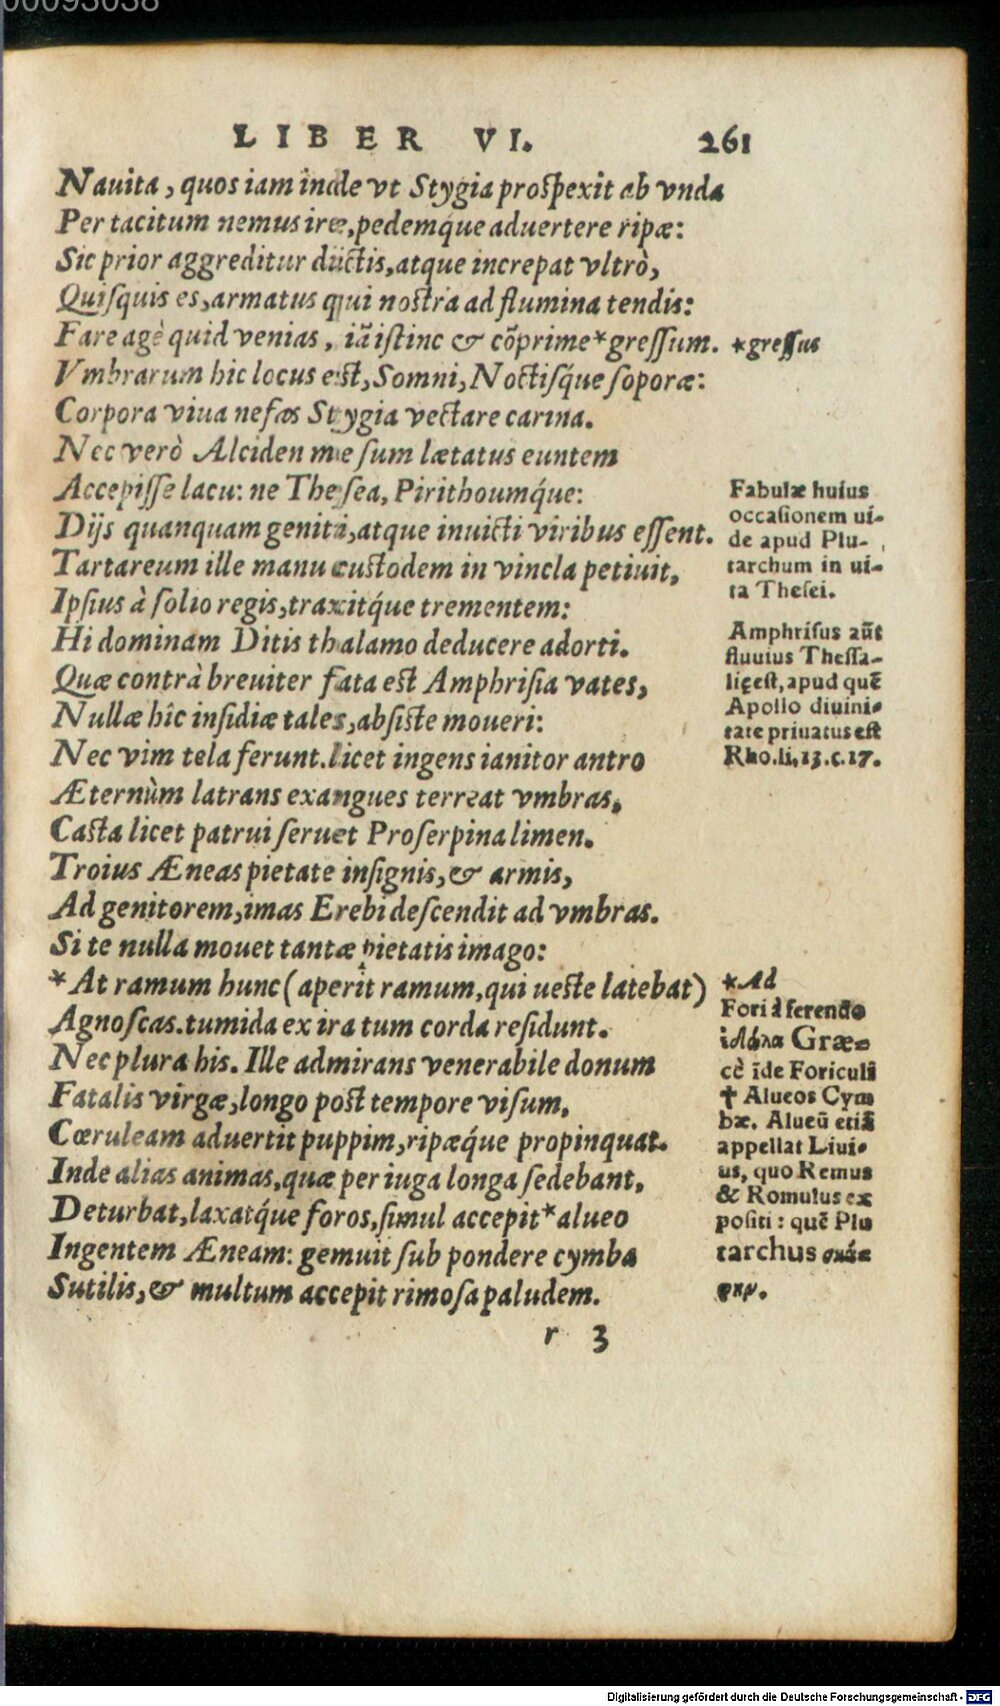 00093038
LIBER VI. 261
Nauita, quos iam inde vt Stygia proſpexit ab vnda
Per tacitum nemus ire, pedemq́ue aduertere ripæ:
Sic prior aggreditur dictis, atque increpat vltrò,
Quiſquis es, armatus qui noſtra ad flumina tendis:
Fare agè quid venias, iã iſtinc & cõprime *greſſum.
Vmbrarum hic locus eſt, Somni, Noctiſq́ue ſoporæ:
Corpora viua nefas Stygia vectare carina.
Nec verò Alciden me ſum lætatus euntem
Accepiſſe lacu: ne Theſea, Pirithoumq́ue:
Dijs quanquam geniti, atque inuicti viribus eſſent.
Tartareum ille manu cuſtodem in vincla petiuit,
Ipſius à ſolio regis, traxitq́ue trementem:
Hi dominam Ditis thalamo deducere adorti.
Quæ contrà breuiter fata eſt Amphriſia vates,
Nullæ hîc inſidiæ tales, abſiſte moueri:
Nec vim tela ferunt. licet ingens ianitor antro
Æternùm latrans exangues terreat vmbras,
Caſta licet patrui ſeruet Proſerpina limen.
Troius Æneas pietate inſignis, & armis,
Ad genitorem, imas Erebi deſcendit ad vmbras.
Si te nulla mouet tantæ pietatis imago:
*At ramum hunc (aperit ramum, qui ueſte latebat)
Agnoſcas. tumida ex ira tum corda reſidunt.
Nec plura his. Ille admirans venerabile donum
Fatalis virgæ, longo poſt tempore viſum,
Cœruleam aduertit puppim, ripæq́ue propinquat.
Inde alias animas, quæ per iuga longa ſedebant,
Deturbat, laxatq́ue foros, ſimul accepit *alueo
Ingentem Æneam: gemuit ſub pondere cymba
Sutilis, & multum accepit rimoſa paludem.
r 3
*greſſus
Fabulæ huius
occaſionem ui-
de apud Plu-
tarchum in ui-
ta Theſei.
Amphriſus aũt
fluuius Theſſa-
lięeſt, apud quẽ
Apollo diuini-
tate priuatus eſt
Rho. li, 13. c. 17.
*Ad
Fori à ferendo
Græ-
cè ĩde Foriculi
† Alueos Cym
bæ. Alueũ etiã
appellat Liui-
us, quo Remus
& Romulus ex
poſiti: quẽ Plu
tarchus σκά-
φην.
Digitalisierung gefördert durch die Deutsche Forschungsgemeinschaft - DFG